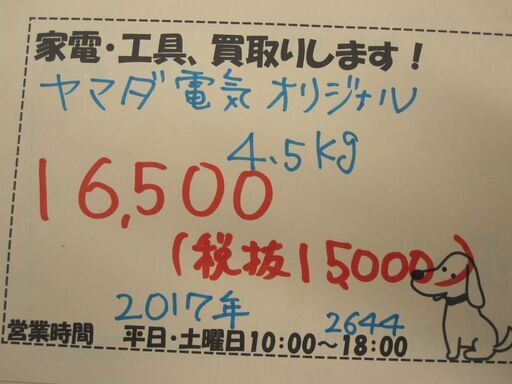 家電・工具、買取りします！
ヤマダ電気 オリジナル
4.5kg
16,500
(税抜15,000)
2017年
2644
営業時間 平日・土曜日10:00～18:00